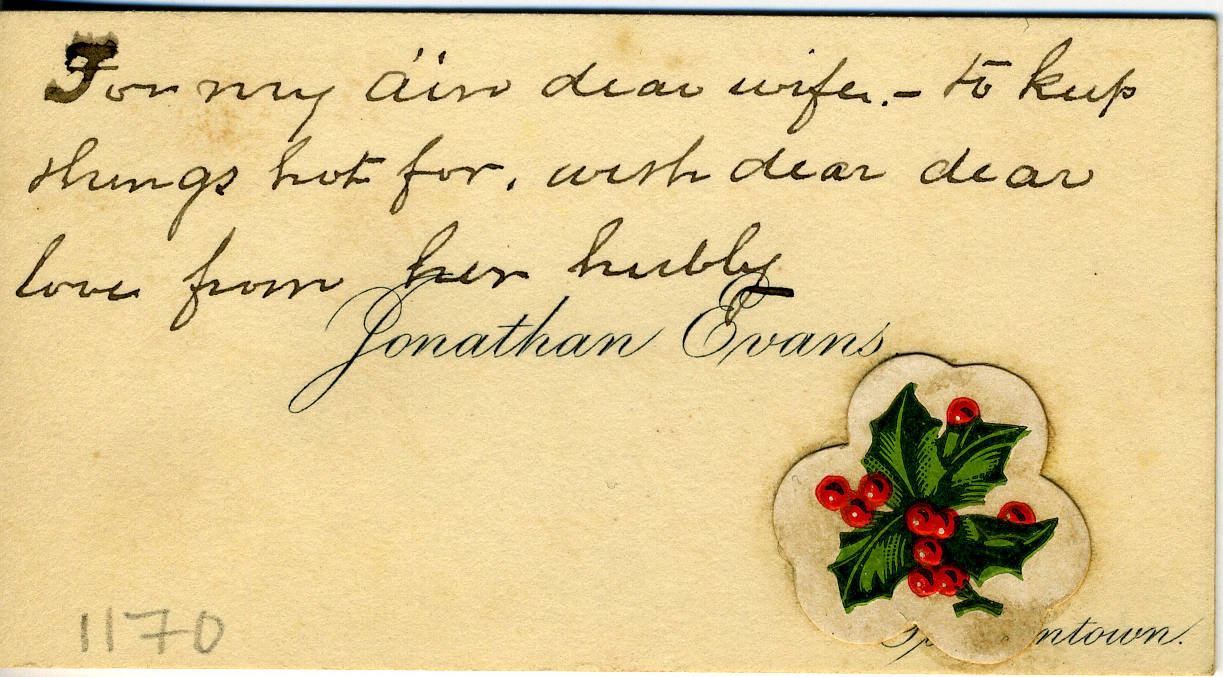 For my ain dear wife. – to keep
things hot for, with dear dear
love from her hubby
Jonathan Evans.
1170